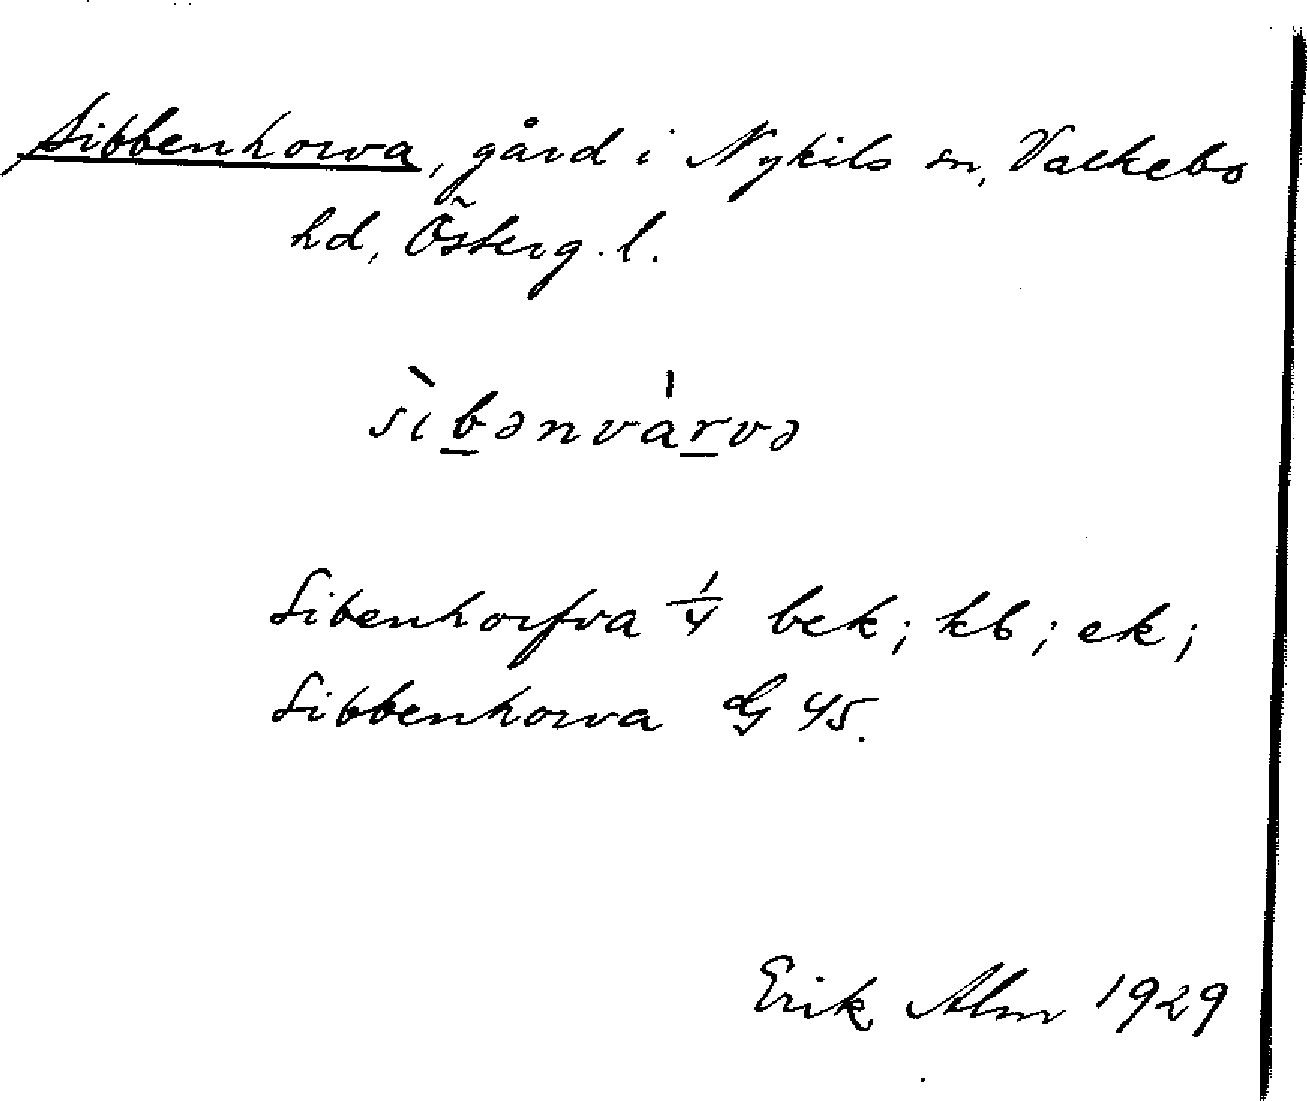 Sibbenhorva, gård i Nykils sn, Valkebo
hd, Österg. l.
sìb̲ənvár̲və
Sibenhorfva 1/4 bek; kb; ek;
Sibbenhorva G 45.
Erik Alm 1929